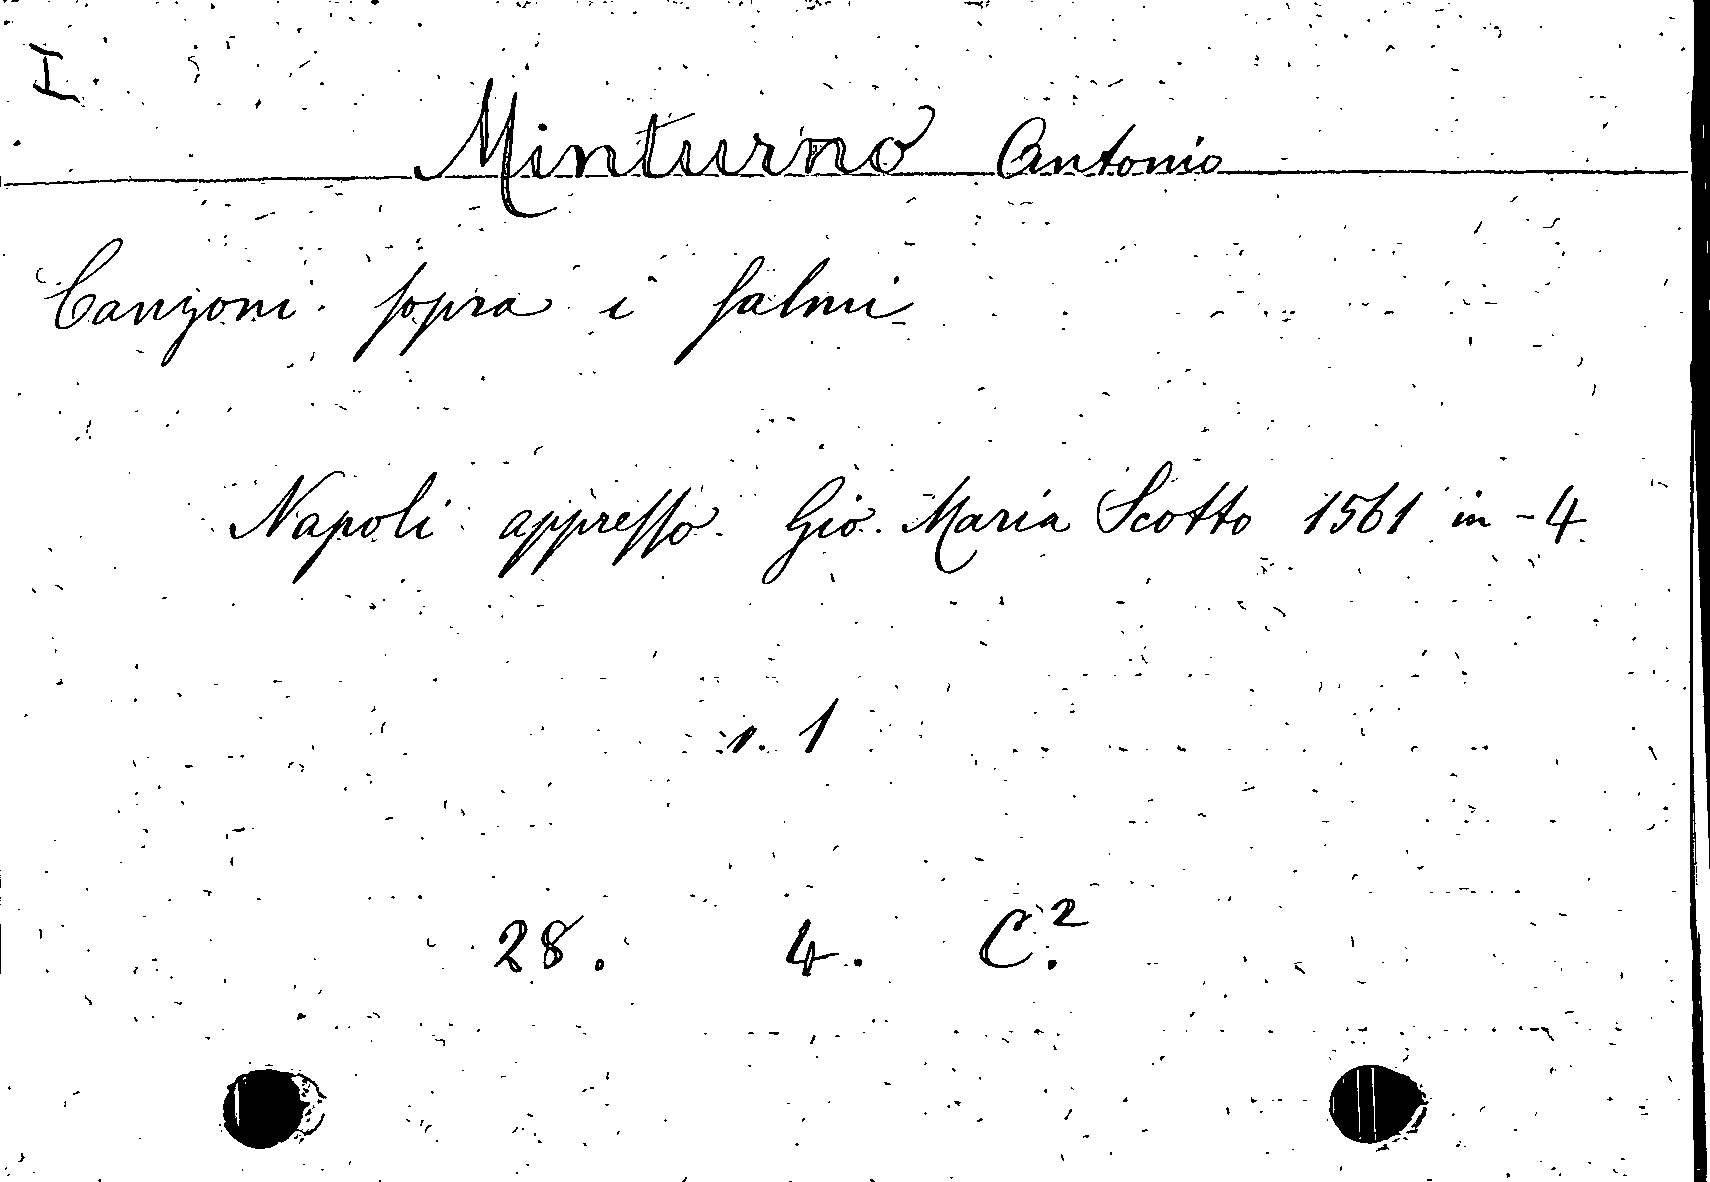 I.
Minturno Antonio
Canzoni sopra i salmi
Napoli appresso Gio. Maria Scotto 1561 in-4
v. 1
28. 4. C.²